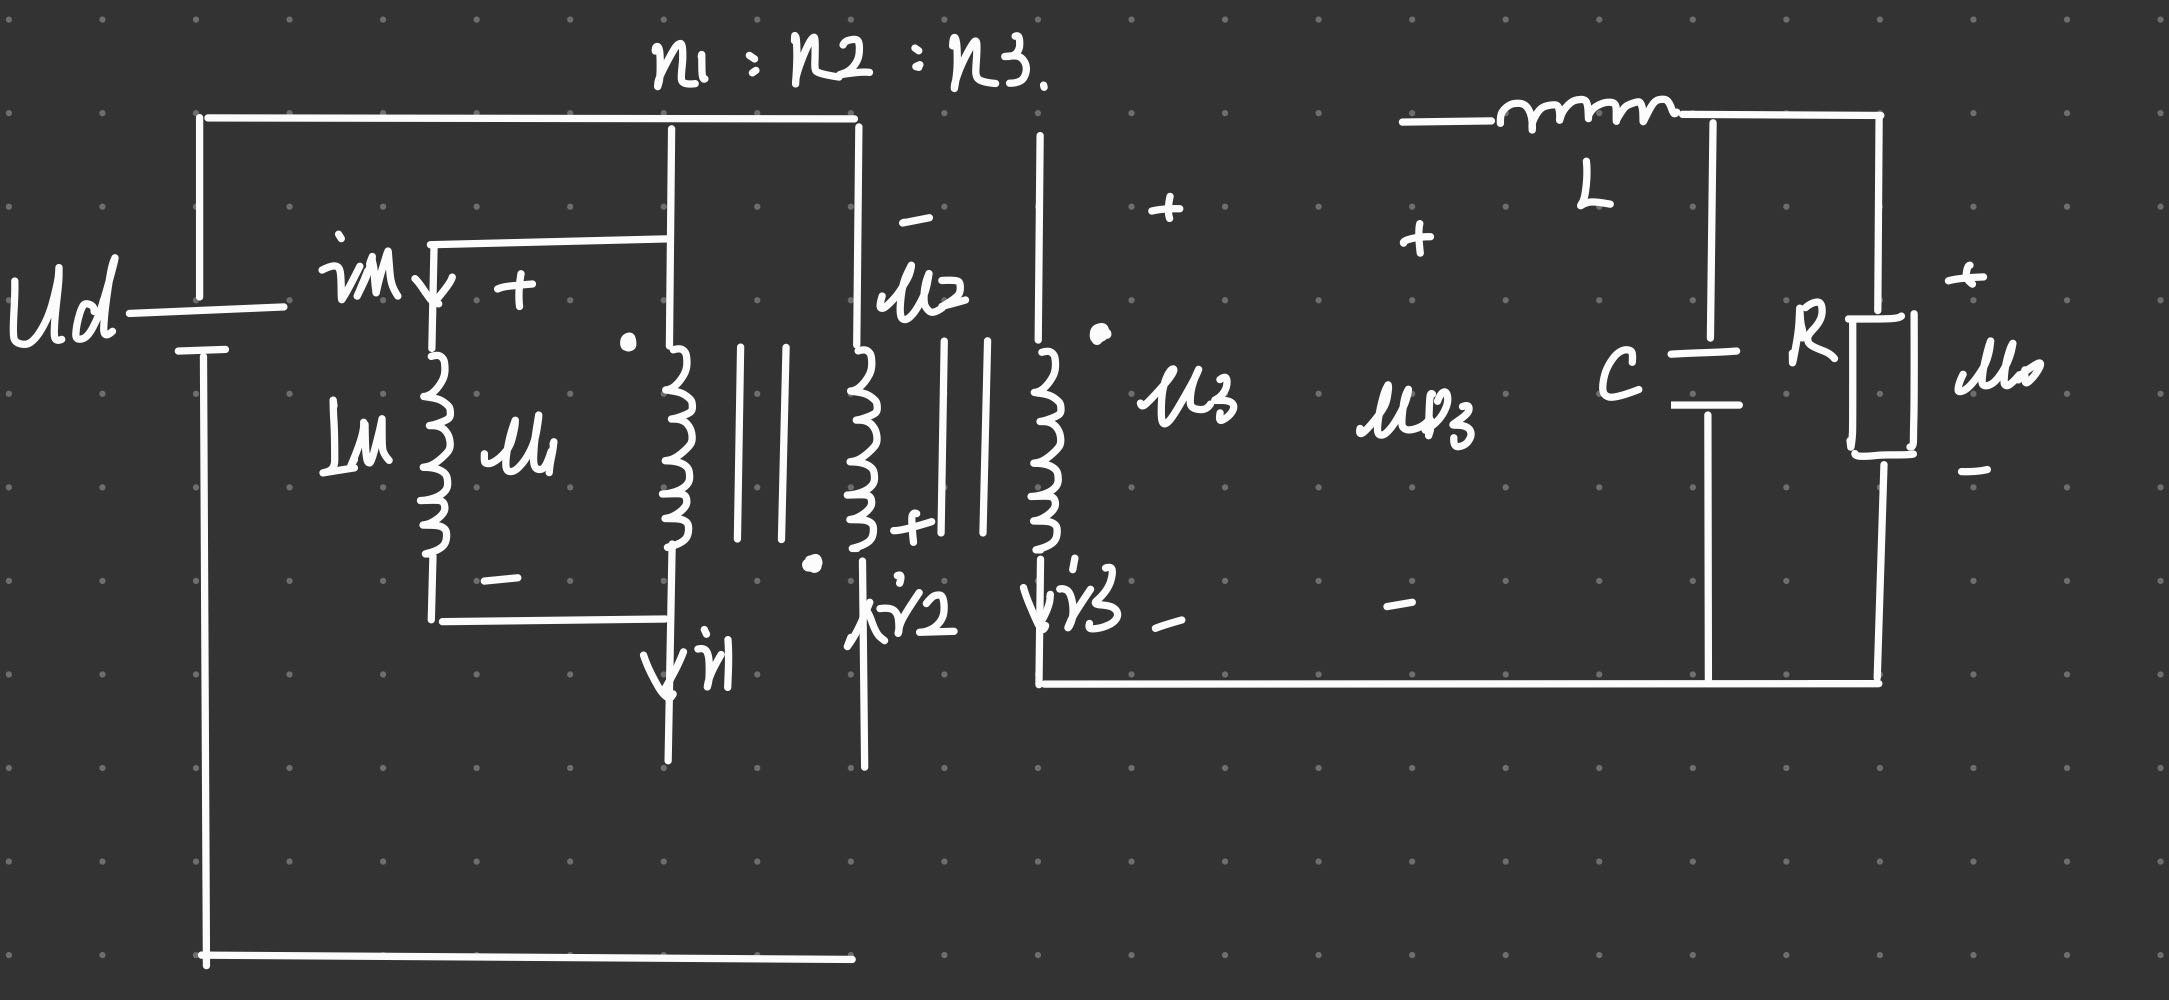 n1 : n2 : n3.
Ud
iM
+
LM
u1
-
i1
-
u2
+
i2
+
u3
-
i3
+
uD3
-
L
C
R
+
uo
-